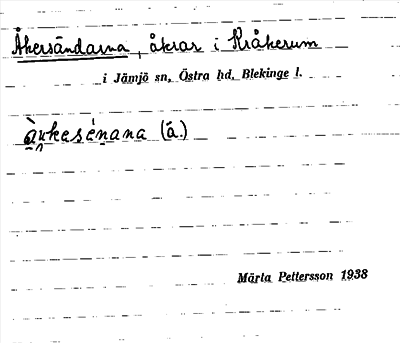 Åkersändarna, åkrar i Kråkerum
i Jämjö sn, Östra hd, Blekinge l.
àukesénana (å.)
Märta Pettersson 1938